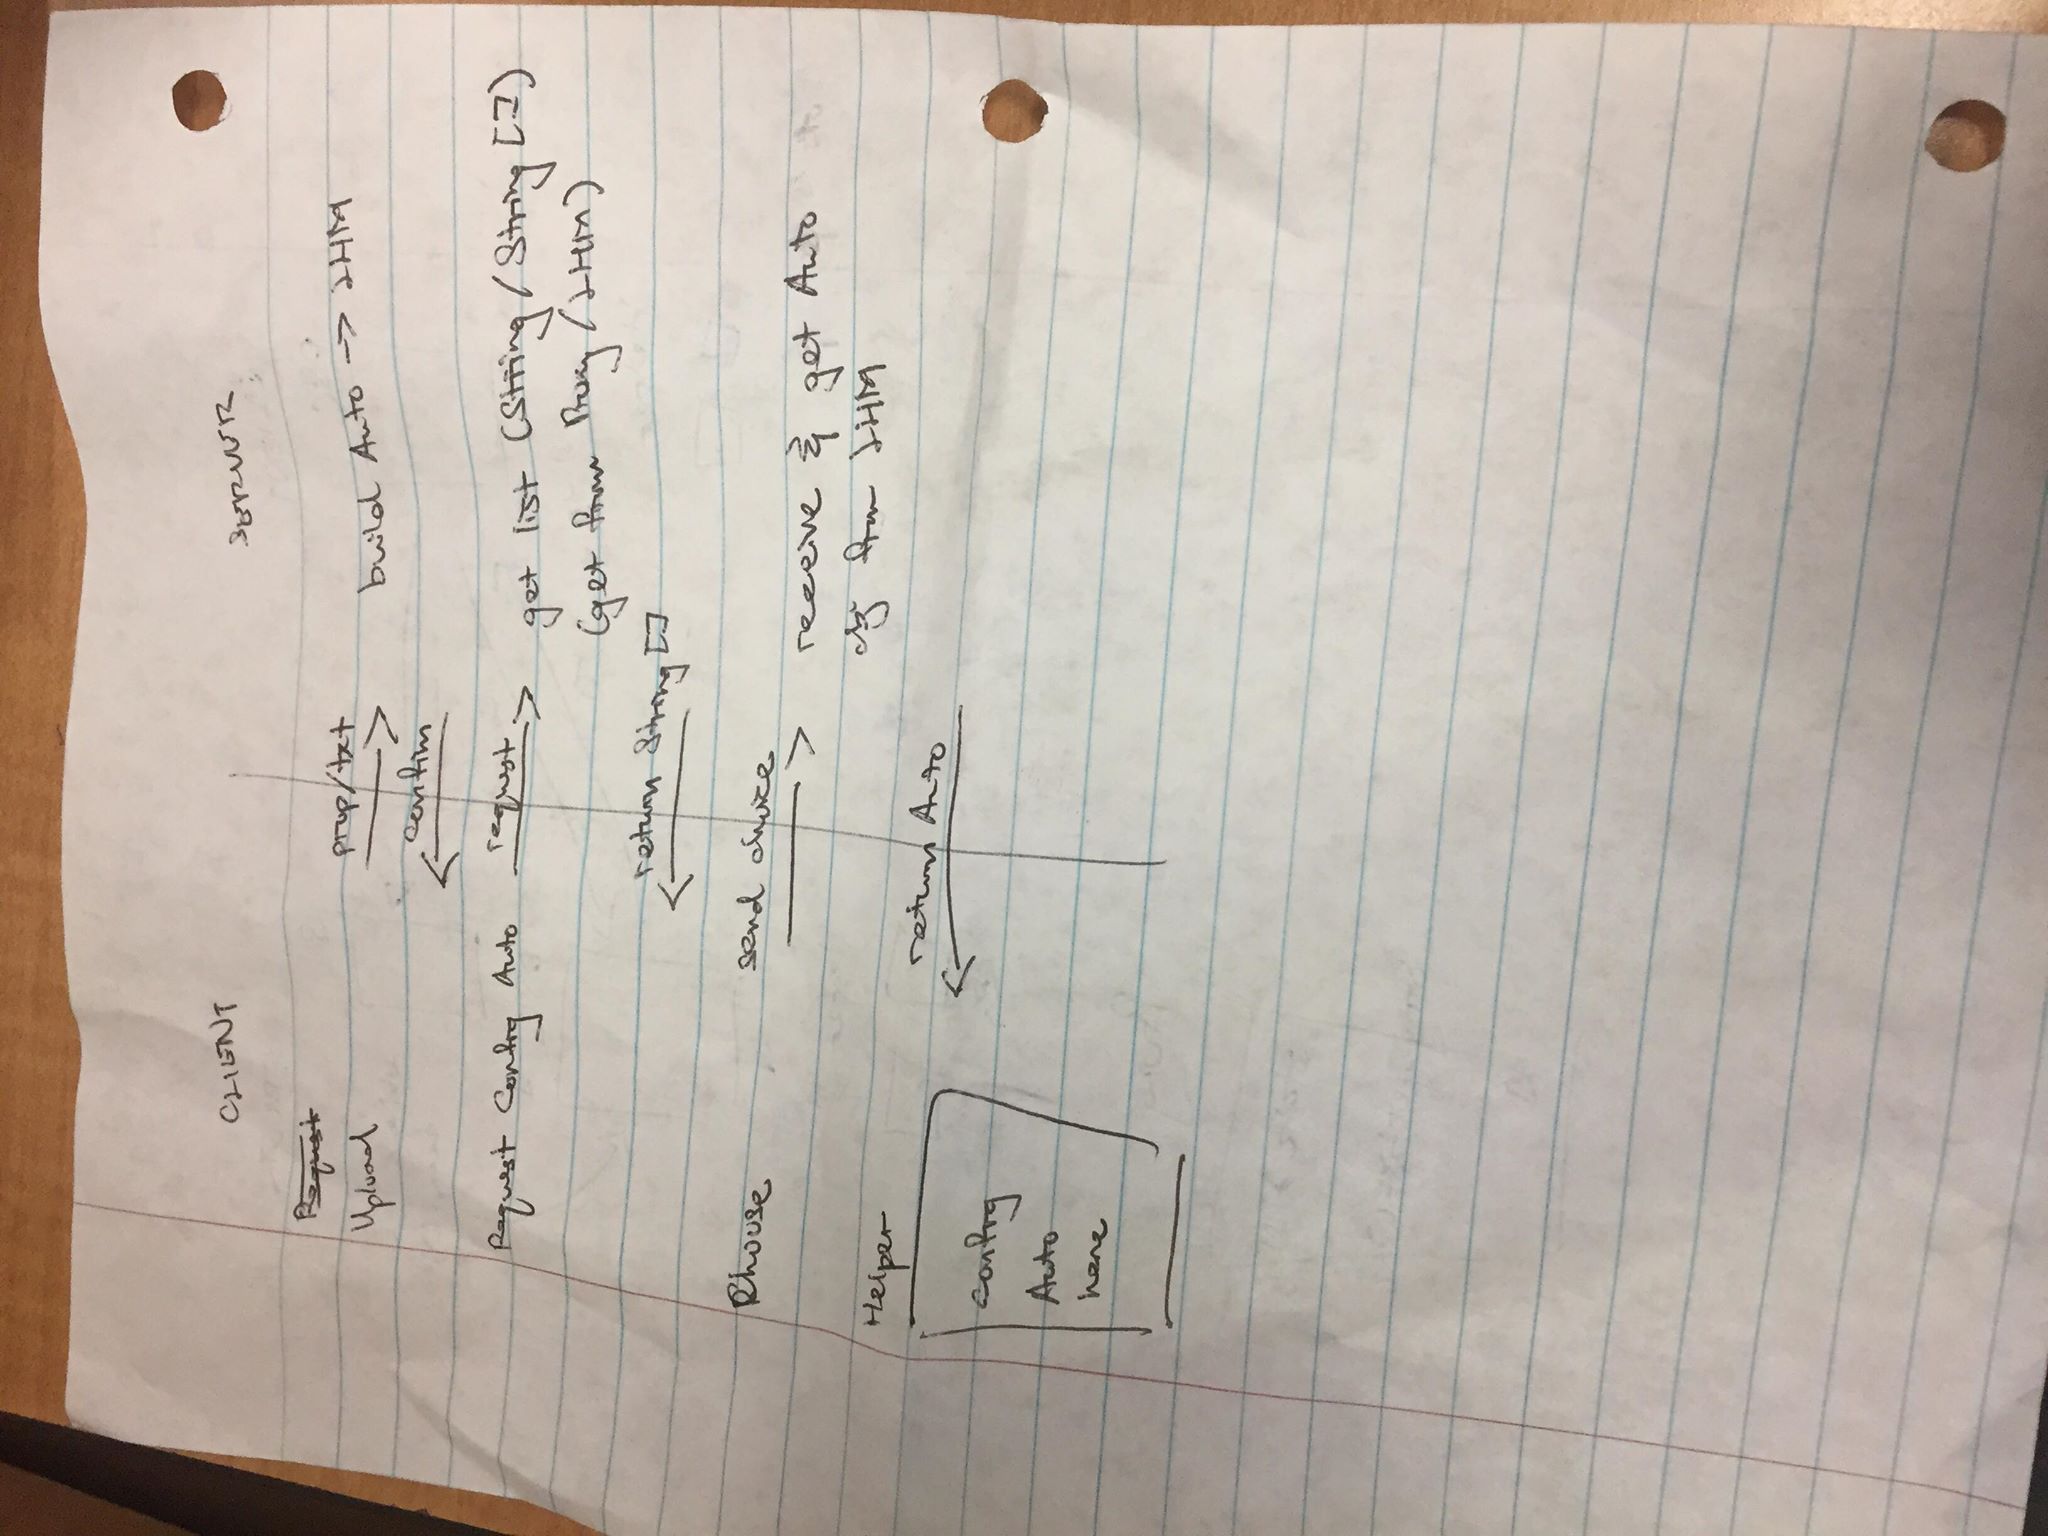 CLIENT SERVER
Request
Upload prop/txt build Auto -> LHM
confirm
Request Config Auto request get list (String / String [])
(get from Proxy / LHM)
return String []
Choose send choice
receive & get Auto
obj from LHM
Helper
return Auto
config
Auto
here